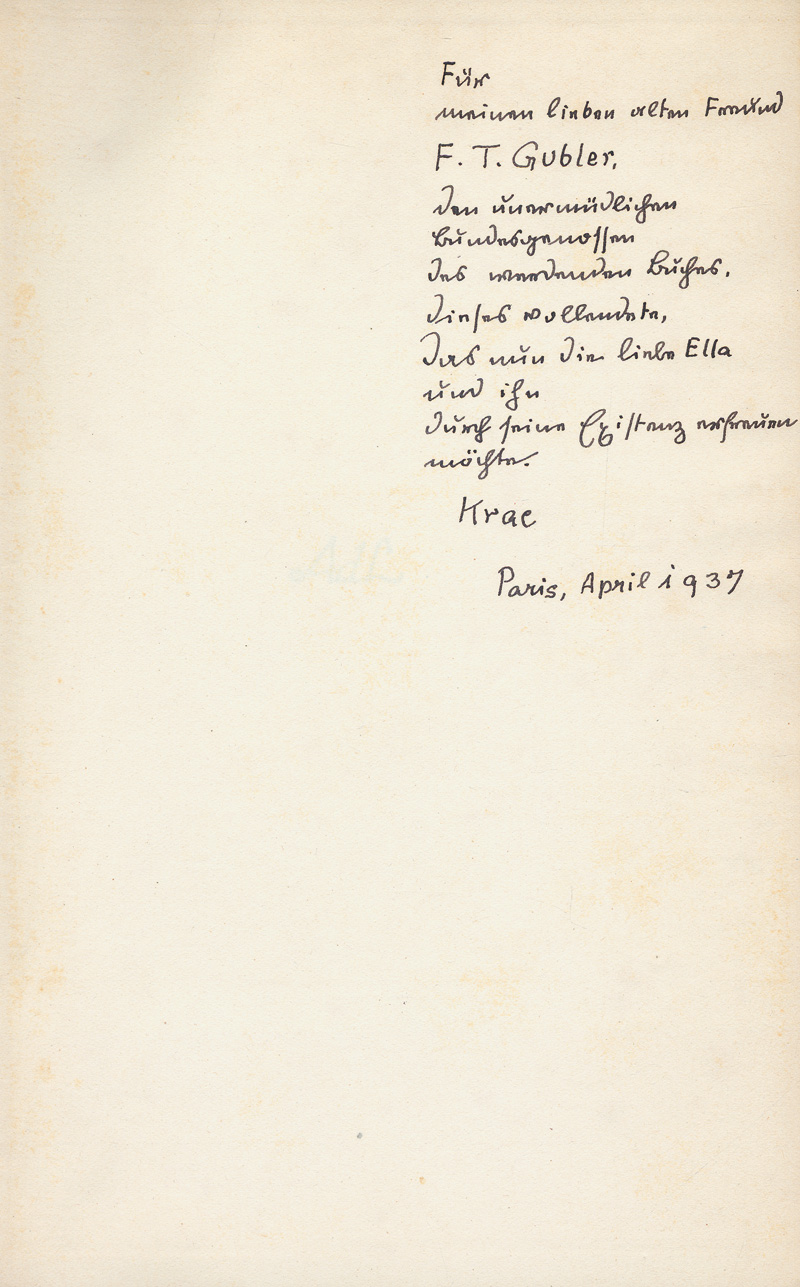 Für
meinen lieben alten Freund
F. T. Gubler,
den unermüdlichen
Bundesgenossen
des werdenden Buches,
dieses vollendete,
das nun die liebe Ella
und ihn
durch seine Existenz erfreuen
möchte.
Krac
Paris, April 1937